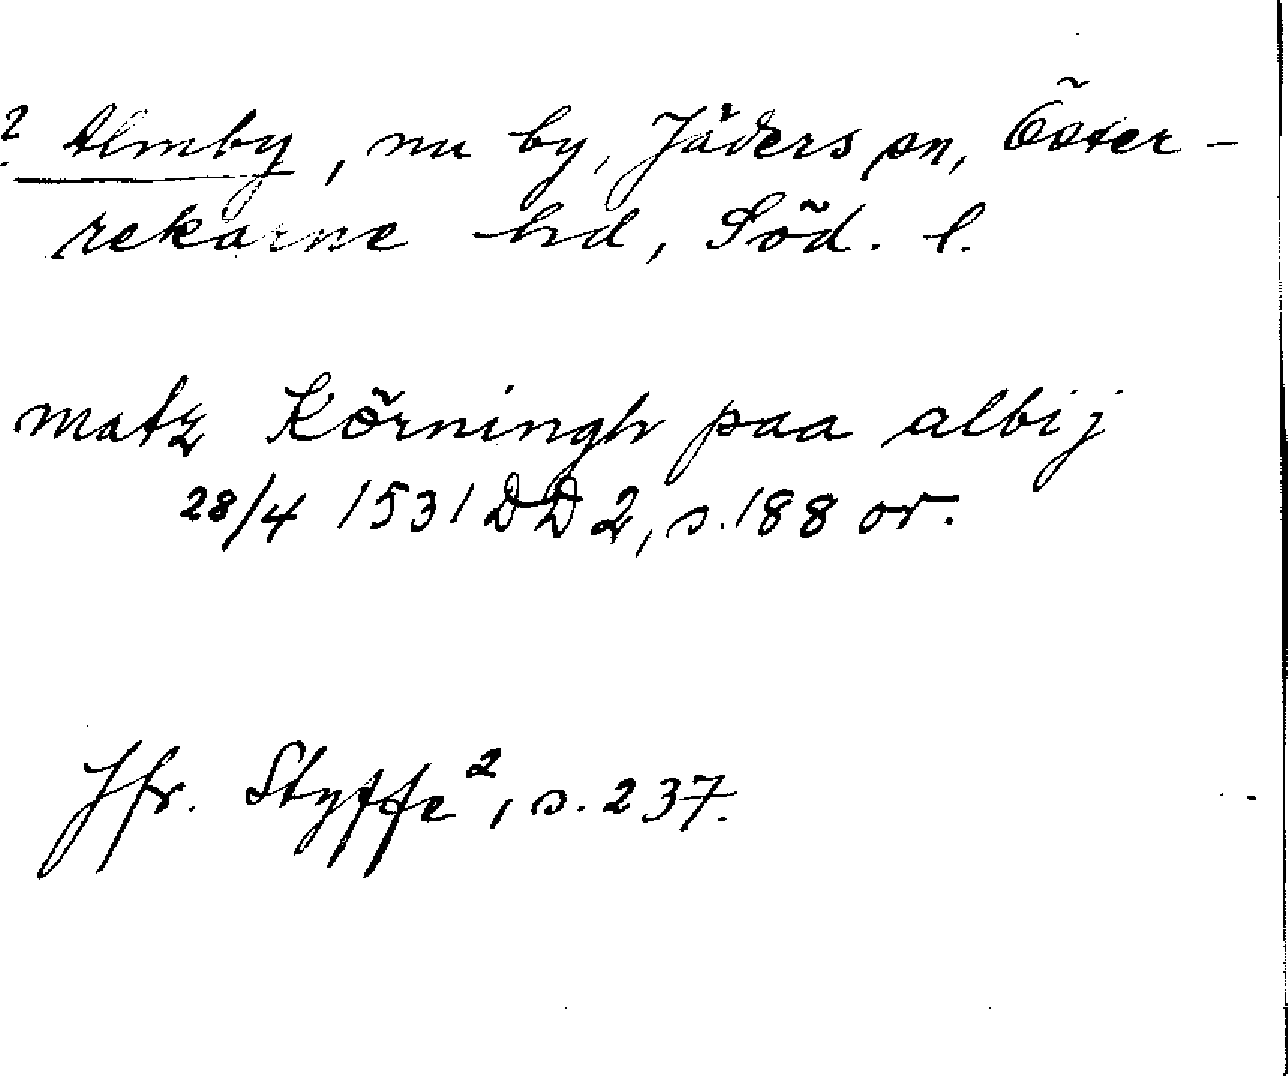 ? Almby, nu by, Jäders sn, Öster-
rekarne hd, Söd. l.
matz Körningh paa albij
28/4 1531 DD 2, s. 188 or.
Jfr. Styffe², s. 237.